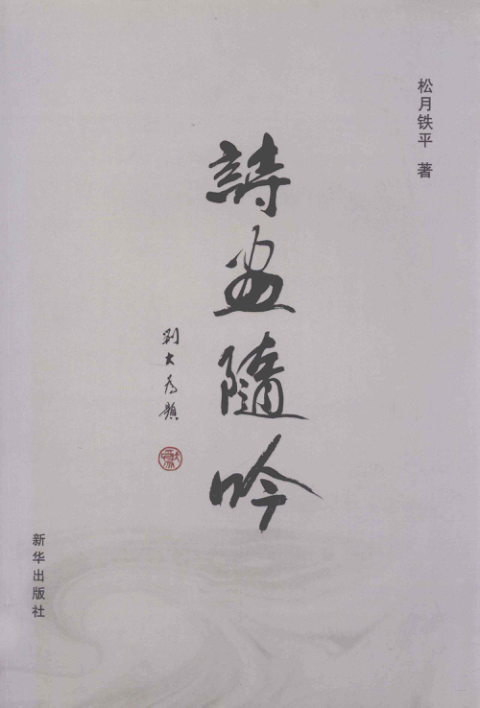 松月铁平 著
詩畫隨吟
刘大为题
新华出版社